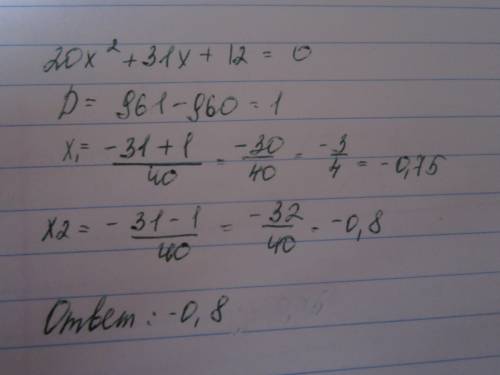 20x² + 31x + 12 = 0
D = 961 - 960 = 1
x₁ = (-31 + 1)/40 = -30/40 = -3/4 = -0,75
x2 = (-31 - 1)/40 = -32/40 = -0,8
Ответ: -0,8